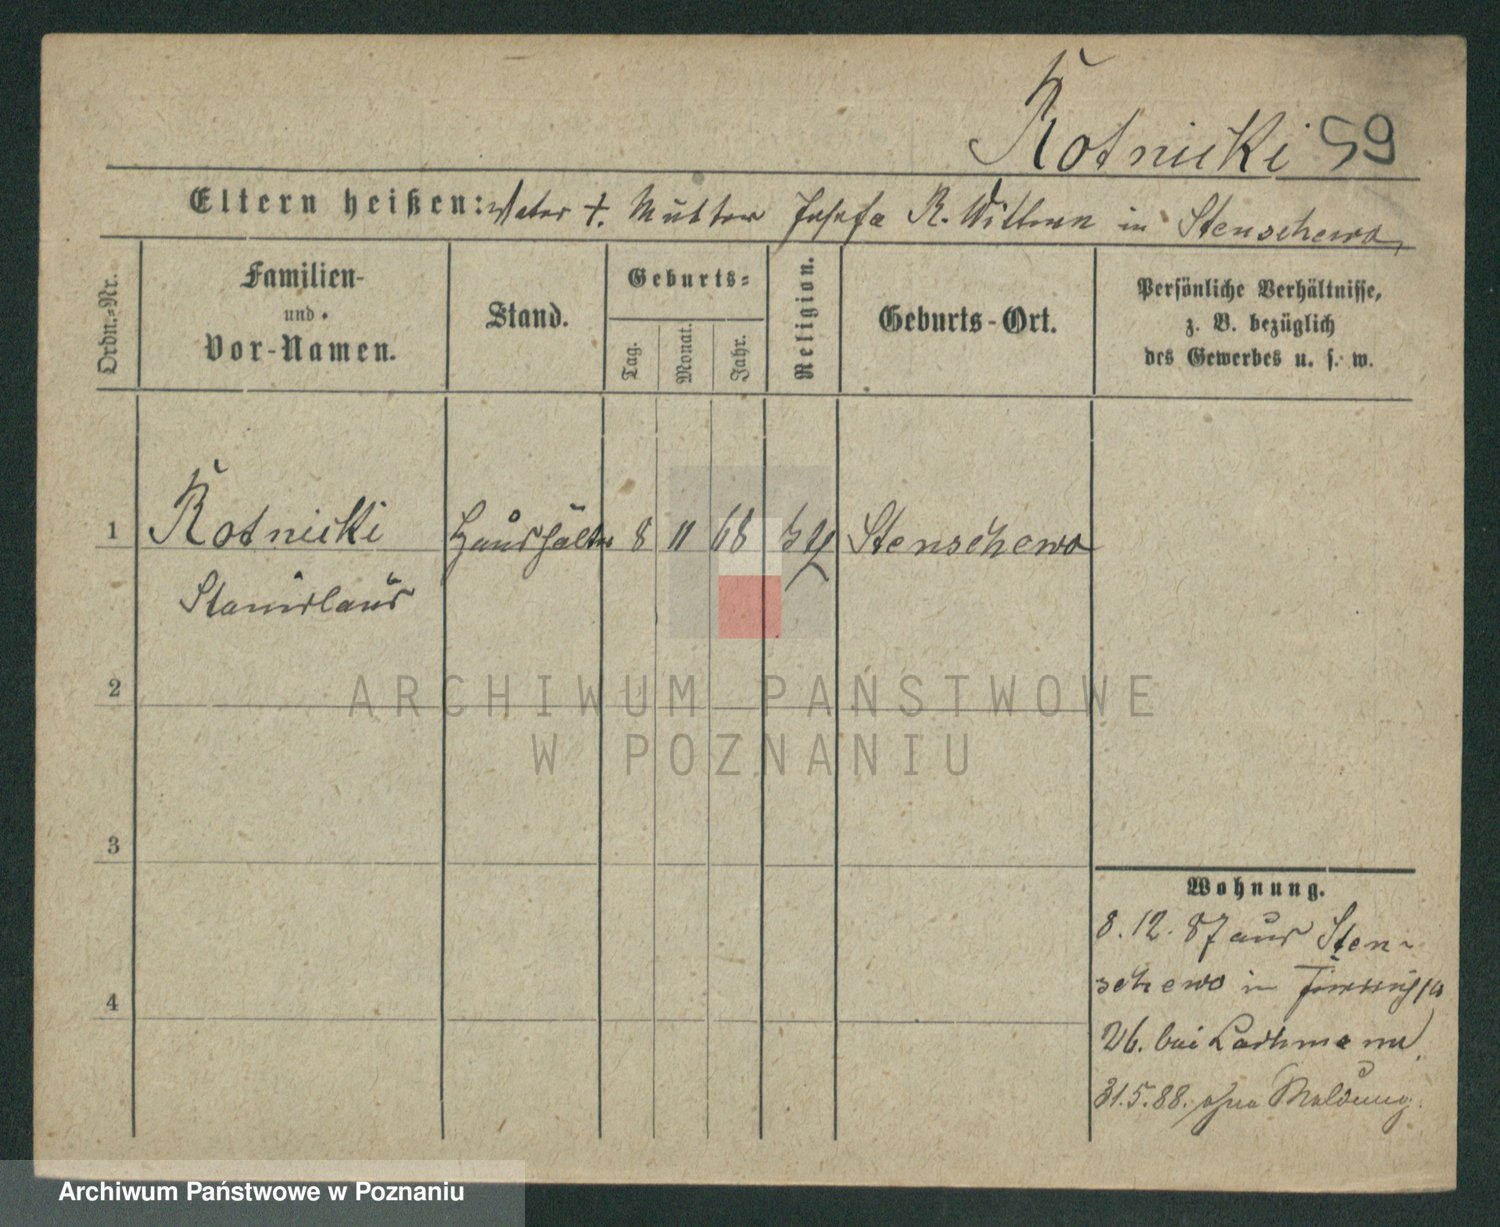 Rotnicki 59
Eltern heißen: Vater †. Mutter Josefa R. Wittwe in Stenschewo,
Ordn.=Nr.
Familien-
und
Vor-Namen.
Stand.
Geburts=
Tag.
Monat.
Jahr.
Religion.
Geburts-Ort.
Persönliche Verhältnisse,
z. B. bezüglich
des Gewerbes u. s. w.
1 Rotnicki Haushälter 8 11 68 Stenschewo
Stanislaus
2
ARCHIWUM PAŃSTWOWE
W POZNANIU
3
Wohnung.
8.12.87 aus Sten-
schewo in
4
26. bei
31.5.88. ohne Meldung.
Archiwum Państwowe w Poznaniu